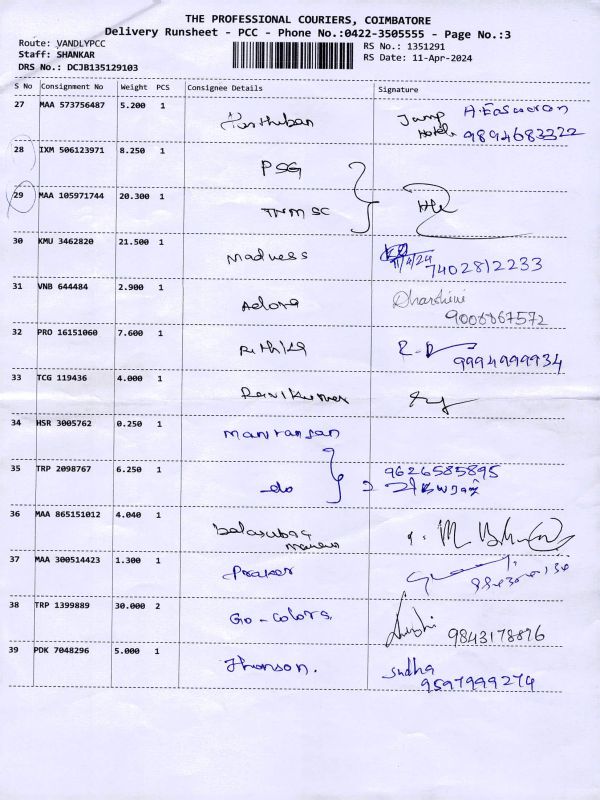 THE PROFESSIONAL COURIERS, COIMBATORE
Delivery Runsheet - PCC - Phone No.:0422-3505555 - Page No.:3
Route: VANDLYPCC
Staff: SHANKAR
DRS No.: DCJB135129103
RS No.: 1351291
RS Date: 11-Apr-2024
S No Consignment No Weight PCS Consignee Details Signature
27 MAA 573756487 5.200 1 Parthiban Jump Hotels A.Easwaran 9894683222
28 IXM 506123971 8.250 1 PSG
29 MAA 105971744 20.300 1 TNMSC
30 KMU 3462820 21.500 1 Madness 11/4/24 7402812233
31 VNB 644484 2.900 1 Adora Dharshini 9008867572
32 PRO 16151060 7.600 1 Rithika 9994999934
33 TCG 119436 4.000 1 Ravikumar
34 HSR 3005762 0.250 1
35 TRP 2098767 6.250 1 do 9626585895
36 MAA 865151012 4.040 1
37 MAA 300514423 1.300 1
38 TRP 1399889 30.000 2 Go-Colors 9843178876
39 PDK 7048296 5.000 1 Thonson. Sudha 9597999274